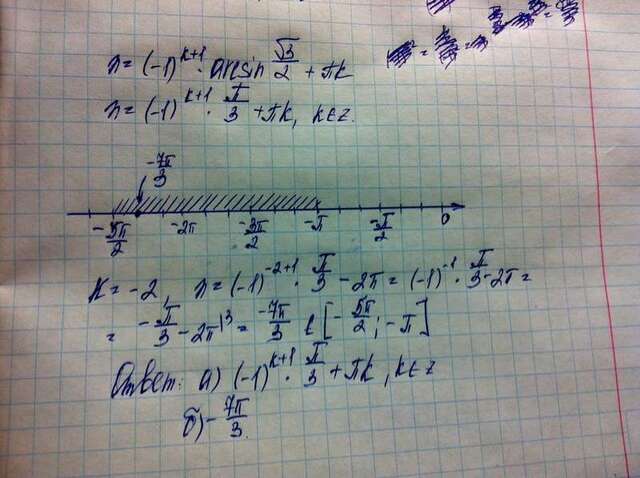 n = (-1)^{k+1} · arcsin √3/2 + πk
n = (-1)^{k+1} · π/3 + πk, k∈z.
-7π/3
-5π/2 -2π -3π/2 -π -π/2 0
K = -2, n = (-1)^{-2+1} · π/3 - 2π = (-1)^{-1} · π/3 - 2π =
= -π/3 - 2π|³ = -7π/3 ∈ [-5π/2 ; -π]
Ответ: а) (-1)^{k+1} · π/3 + πk, k∈z
б) -7π/3.